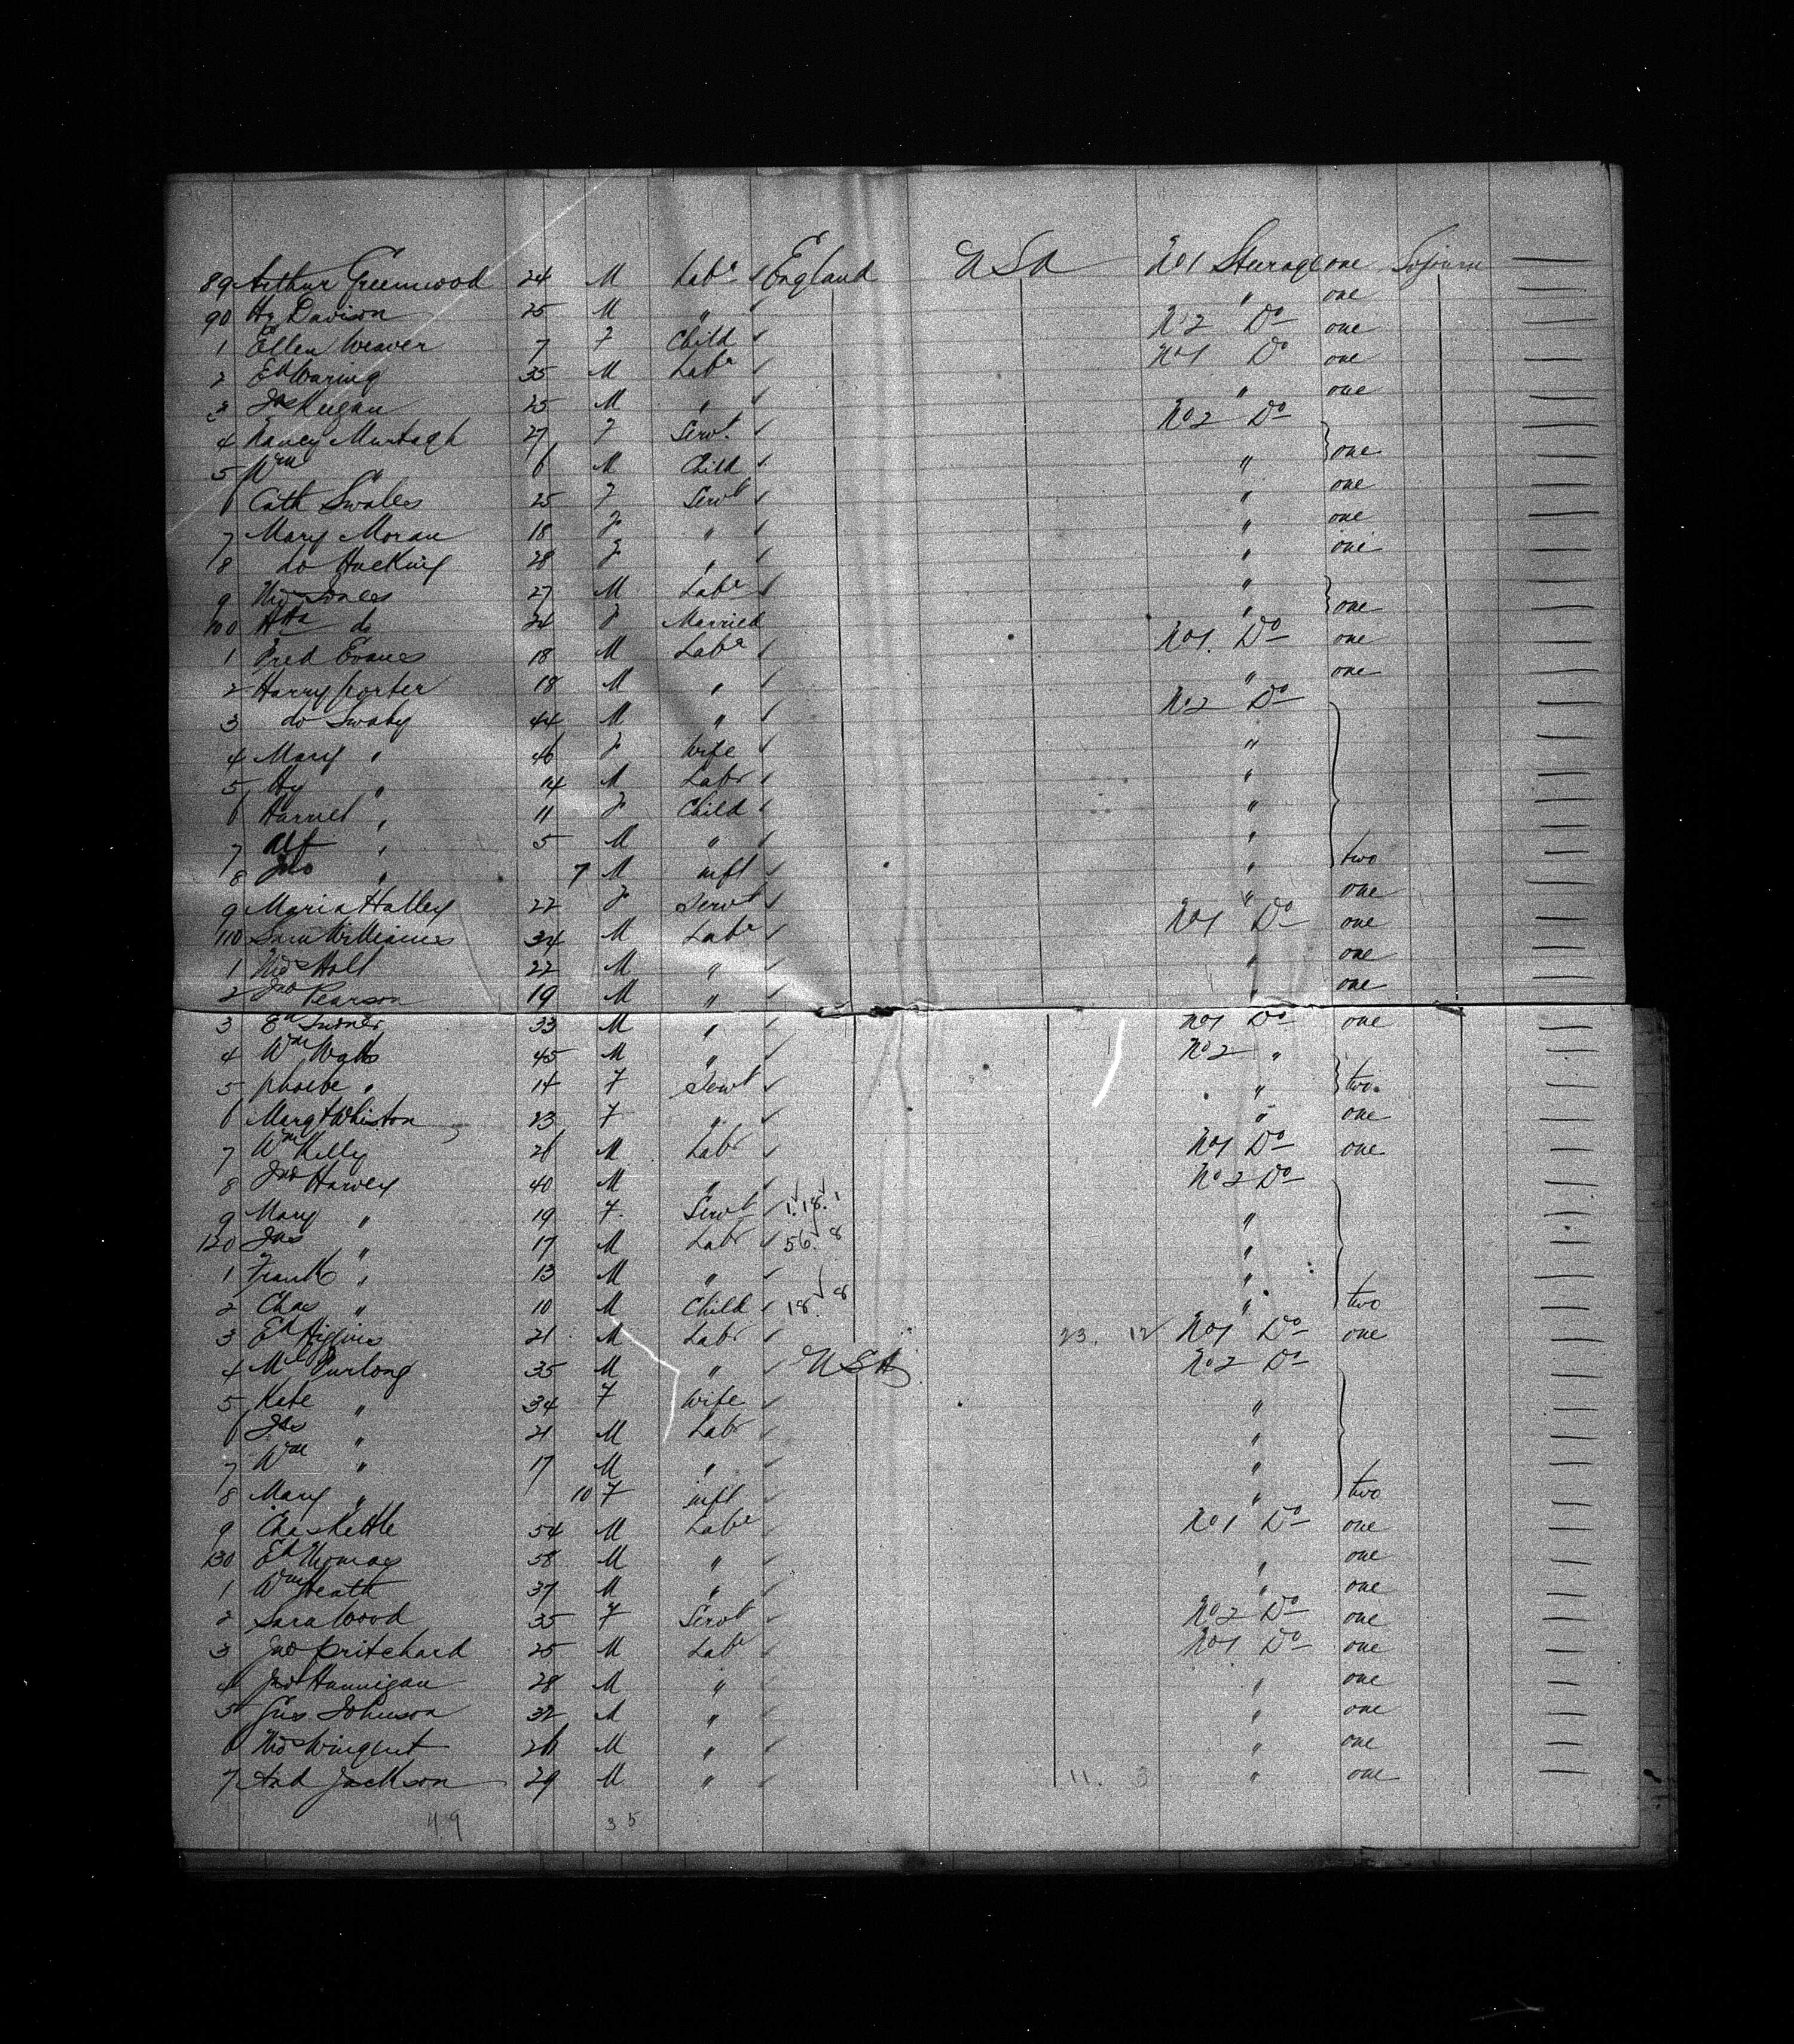 89 Arthur Greenwood 24 M Labr England USA No1 Steerage one Sojourn
90 Hy Davison 25 M " " one
1 Ellen Weaver 7 F Child No2 Do one
2 Ed Waring 35 M Labr No1 Do one
3 Jas Keegan 25 M " " one
4 Nancy Murtagh 27 F Servt No2 Do
5 Wm " 6 M Child " one
6 Cath Swales 25 F Servt " one
7 Mary Moran 18 F " " one
8 do Hucking 28 F " " one
9 27 M Labr "
100 do 24 F Married " one
1 Fred Evans 18 M Labr No1. Do one
2 Harry Porter 18 M " " one
3 do Swaby 44 M " No2 Do
4 Mary " 46 F Wife "
5 Hy " 14 M Labr "
6 Harriet " 11 F Child "
7 Alf " 5 M " "
8 Jno " 7 M inft " two
9 Maria Halley 22 F Servt " one
110 Sam Williams 34 M Labr No1 Do one
1 Thos Holt 22 M " " one
2 Jno Pearson 19 M " " one
3 Ed Turner 33 M " No1 Do one
4 Wm Watts 45 M " No2 "
5 Phoebe " 14 F Servt " two
6 Margt Whiston 23 F " " one
7 Wm Kelly 26 M Labr No1 Do one
8 Jno Harvey 40 M " No2 Do
9 Mary " 19 F. Servt 1.18.1 "
120 Jas " 17 M Labr 56 8 "
1 Frank " 13 M " "
2 Chas " 10 M Child 18 8 " two
3 Ed Higgins 21 M Labr 23. 12 No1 Do one
4 Ml Furlong 35 M " USA No2 Do
5 Kate " 34 F Wife "
6 Jas " 21 M Labr "
7 Wm " 17 M " "
8 Mary " 10 F inft " two
9 Chas Kettle 54 M Labr No1 Do one
130 Ed Thomas 58 M " " one
1 Wm Heath 37 M " " one
2 Sara Wood 35 F Servt No2 Do one
3 Jno Pritchard 25 M Labr No1 Do one
4 Jno Hannigan 28 M " " one
5 Gus Johnson 32 M " " one
6 Thos Winquist 26 M " " one
7 And Jackson 29 M " 11. 3 " one
49 35